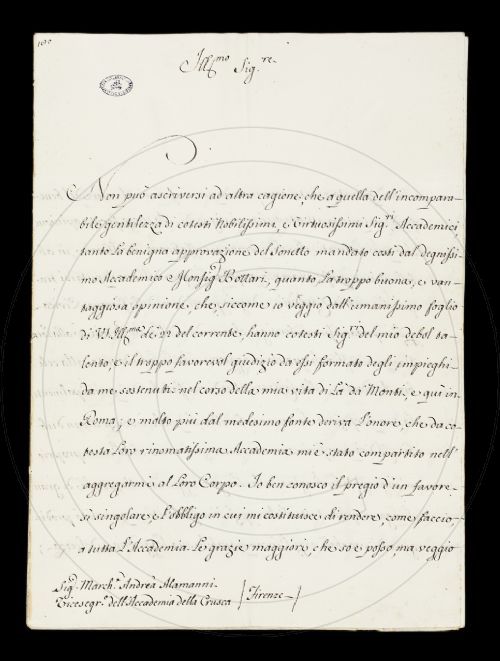 Ill.mo Sig.re
Non può ascriversi ad altra cagione, che a quella dell'incompara-
bile gentilezza di cotesti Nobilissimi, e Virtuosissimi Sig.ri Accademici
tanto la benigna approvazione del Sonetto mandato costì dal degnissi-
mo Accademico e Monsig.r Bottari, quanto la troppo buona, e van-
taggiosa opinione, che, siccome io veggio dall'umanissimo foglio
di VS Ill.ma de' 22 del corrente, hanno cotesti Sig.ri del mio debol ta-
lento, e il troppo favorevol giudizio da essi formato degli impieghi
da me sostenuti nel corso della mia vita di là da' Monti, e quì in
Roma; e molto più dal medesimo fonte deriva l'onore, che da co-
testa loro rinomatissima Accademia mi è stato compartito nell'
aggregarmi al loro Corpo. Io ben conosco il pregio d'un favore
sì singolare, e l'obbligo in cui mi costituisce di rendere, come faccio
a tutta l'Accademia le grazie maggiori, che so e posso, ma veggio
Sig.r March.e Andrea Alamanni
Vicesegr.o dell'Accademia della Crusca Firenze